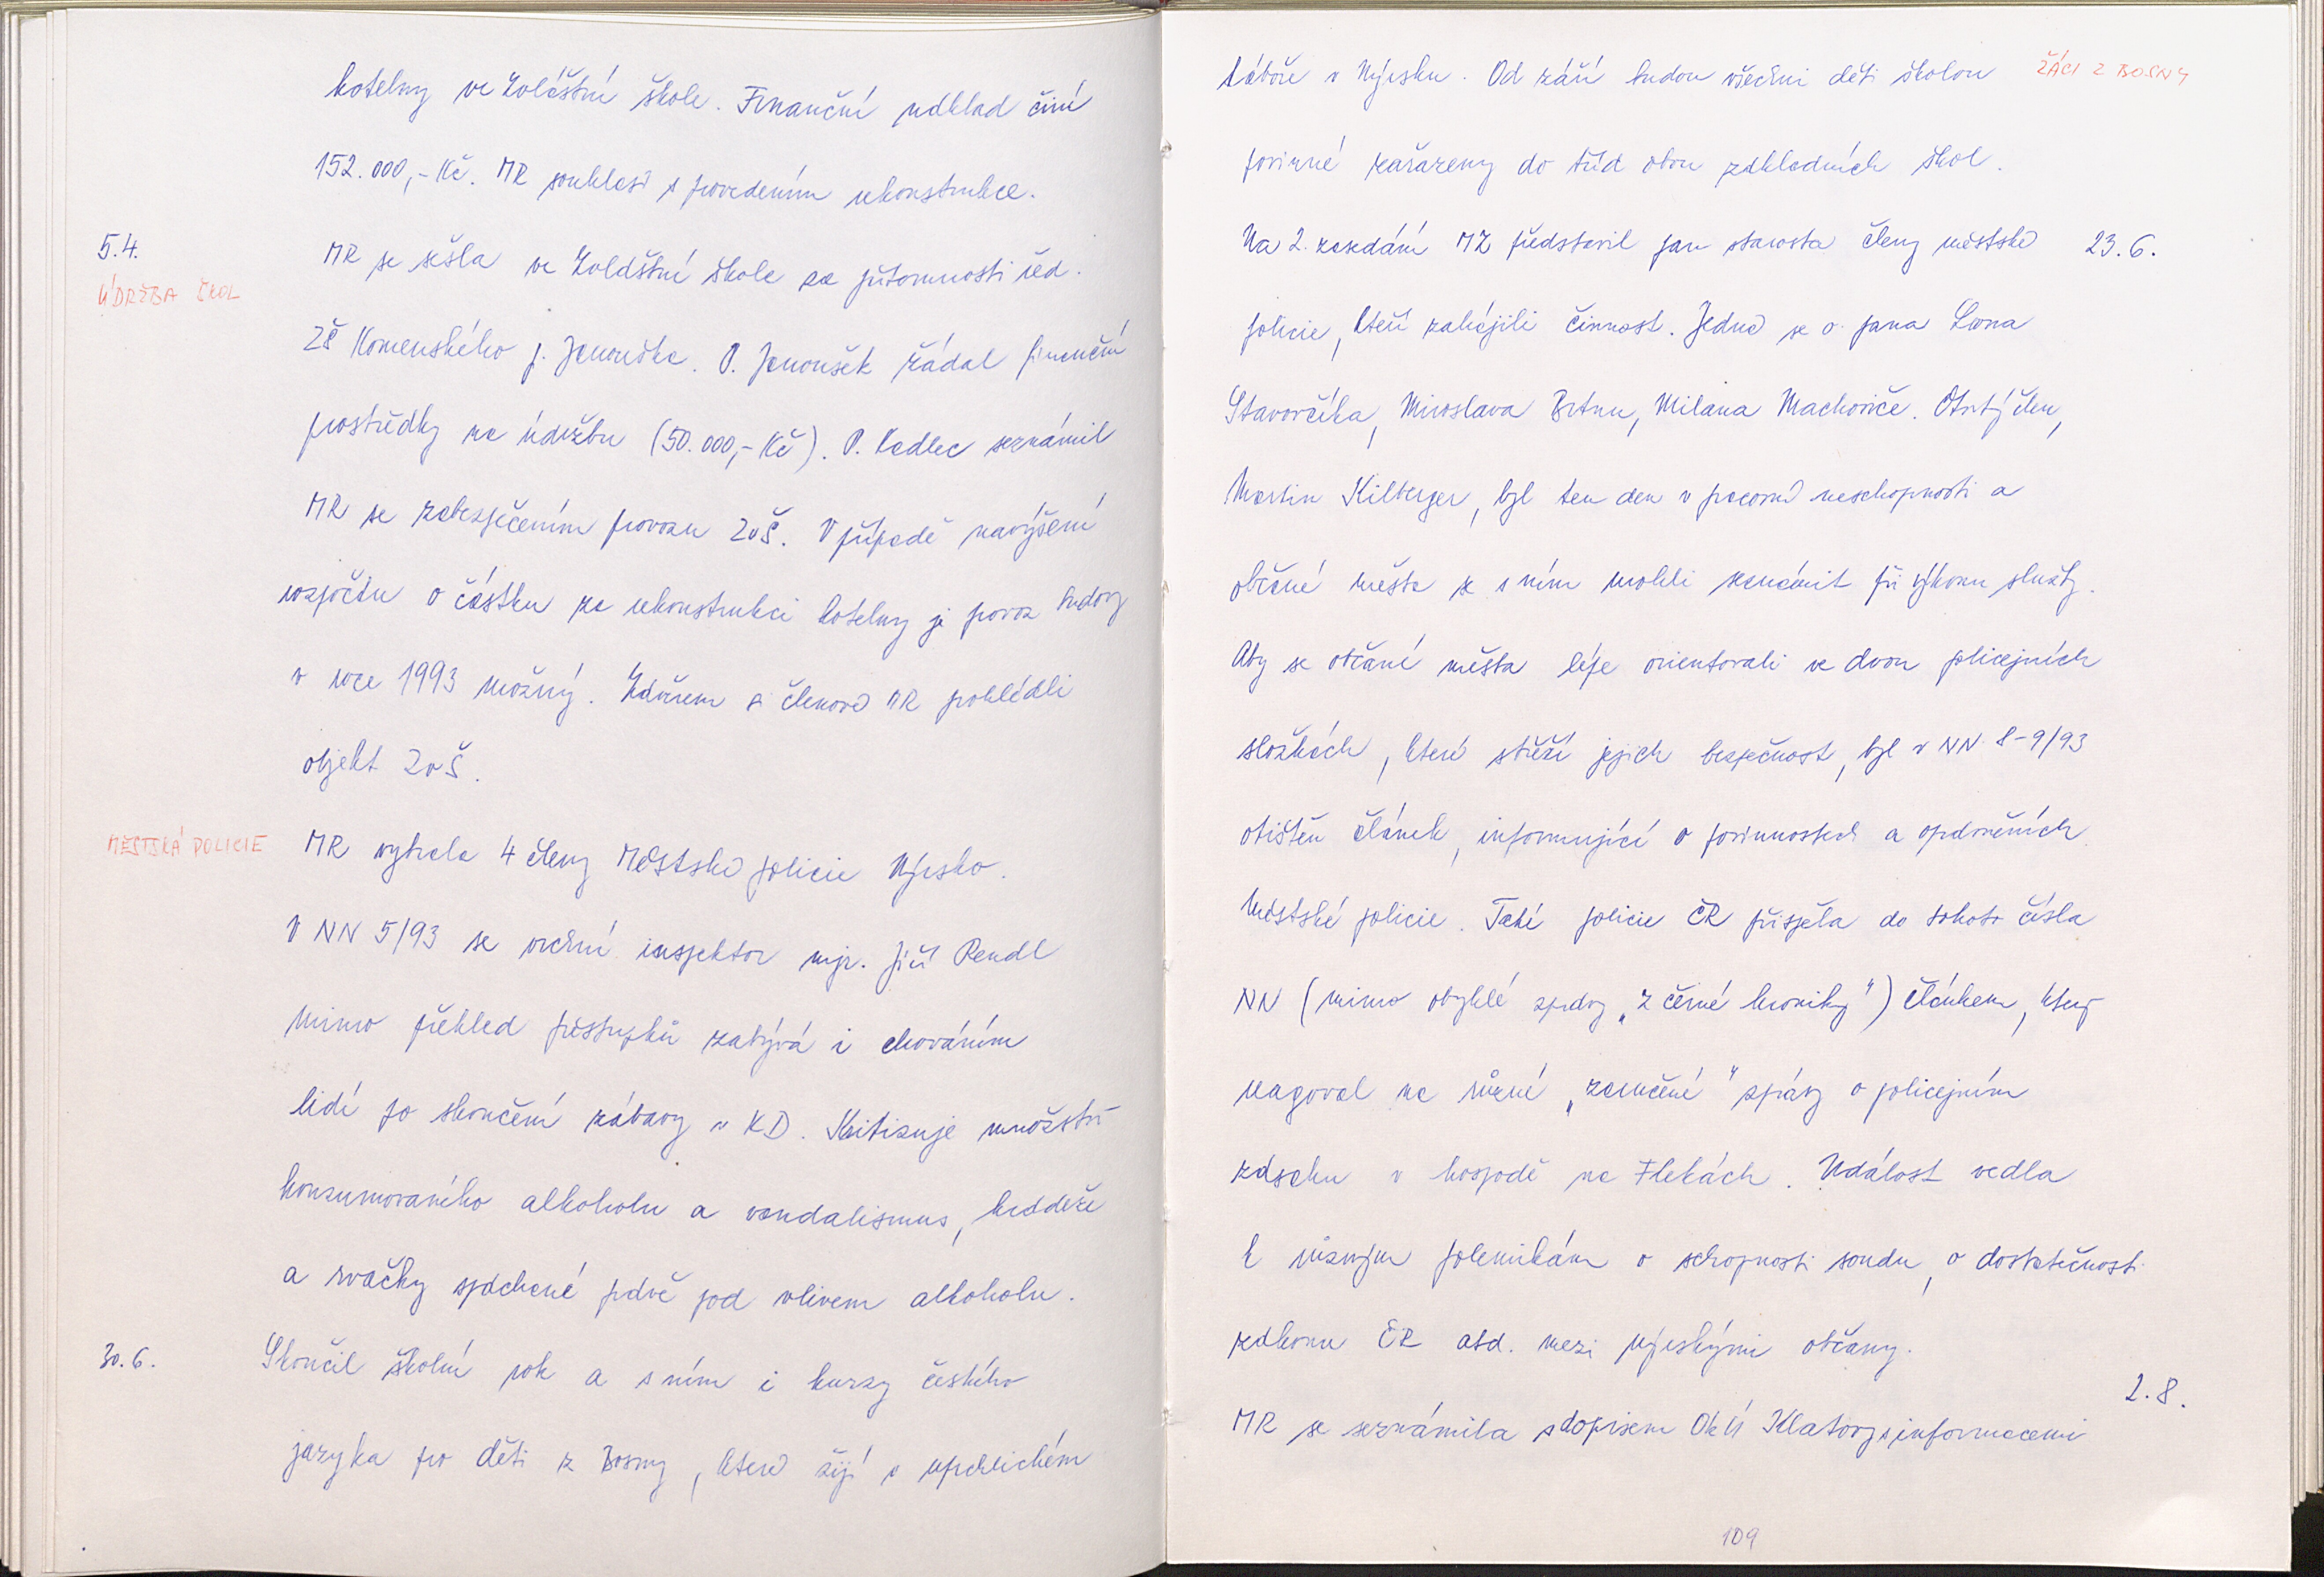 kotelny ve Zvláštní škole. Finanční náklad činí
152.000,-Kč. MR souhlasí s provedením rekonstrukce.
5.4.
MR se sešla ve Zvláštní škole za přítomnosti řed.
ÚDRŽBA ŠKOL
ZŠ Komenského p. Janouška. P. Janoušek žádal finanční
prostředky na údržbu (50.000,-Kč). P. Kadlec seznámil
MR se zabezpečením provozu ZvŠ. V případě navýšení
rozpočtu o částku za rekonstrukci kotelny je provoz budovy
v roce 1993 možný. Závěrem si členové MR prohlédli
objekt ZvŠ.
MĚSTSKÁ POLICIE
MR vybrala 4 členy Městské policie Nýrsko.
V NN 5/93 se vrchní inspektor mjr. Jiří Rendl
mimo přehled přestupků zabývá i chováním
lidí po skončení zábavy v KD. Kritizuje množství
konzumovaného alkoholu a vandalismus, krádeže
a rvačky spáchané právě pod vlivem alkoholu.
30.6.
Skončil školní rok a s ním i kurzy českého
jazyka pro děti z Bosny, které žijí v uprchlickém
táboře v Nýrsku. Od září budou všechni děti školou
ŽÁCI Z BOSNY
povinné zařazeny do tříd obou základních škol.
Na 2. zasedání MZ představil pan starosta členy městské
23.6.
policie, kteří zahájili činnost. Jedná se o pana Leona
Stavorčíka, Miroslava Brtnu, Milana Machoviče. Čtvrtý člen,
Martin Kilberger, byl ten den v pracovní neschopnosti a
občané města se s ním mohli seznámit při výkonu služby.
Aby se občané města lépe orientovali ve dvou policejních
složkách, které střeží jejich bezpečnost, byl v NN 8-9/93
otištěn článek, informující o povinnostech a oprávněních
Městské policie. Také policie ČR přispěla do tohoto čísla
NN (mimo obyklé zprávy „z černé kroniky") článkem, který
reagoval na různé „zaručené" zprávy o policejním
zásahu v hospodě na Flekách. Událost vedla
k různým polemikám o schopnosti soudu, o dostatečnosti
zákonu ČR atd. mezi nýrskými občany.
2.8.
MR se seznámila s dopisem OkÚ Klatovy s informacemi
109